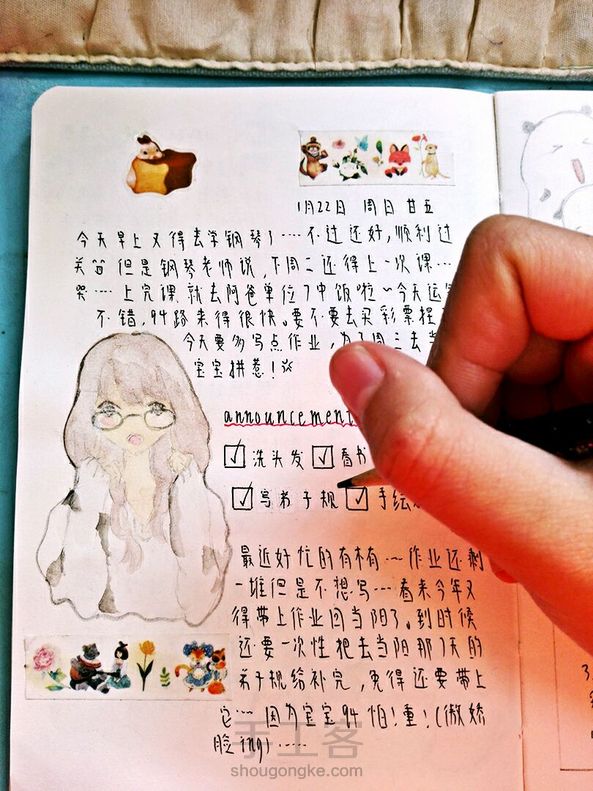 1月22日 周日 廿五
今天早上又得去学钢琴了……不过还好,顺利过
关 但是钢琴老师说,下周二还得上一次课…
哭……上完课就去阿爸单位了中饭啦~今天运
不错,94路来得很快。要不要去买彩票捏
今天要多写点作业,为了周三去当
宝宝拼惹!
announcement
洗头发 看书
写弟子规 手绘
最近好忙的有木有……作业还剩
一堆但是不想写……看来今年又
得带上作业回当阳了。到时候
还要一次性把去当阳那7天的
弟子规给补完,免得还要带上
它……因为宝宝94怕!重!(傲娇
脸ing)……
手工客
shougongke.com